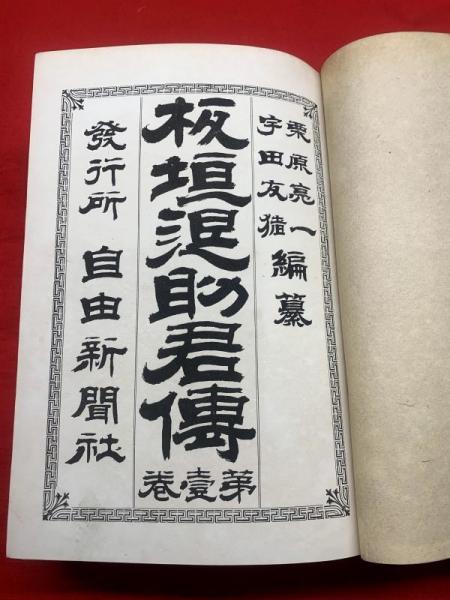 栗原亮一
宇田友猪
編纂
板垣退助君傳
第壹卷
發行所 自由新聞社